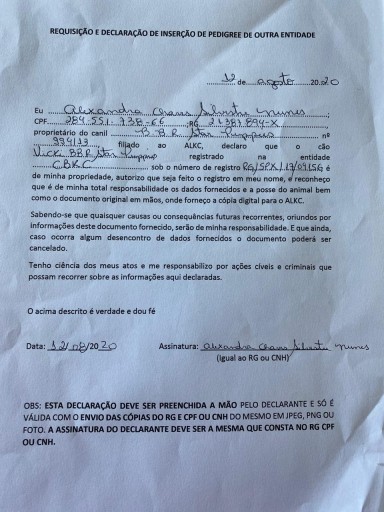 REQUISIÇÃO E DECLARAÇÃO DE INSERÇÃO DE PEDIGREE DE OUTRA ENTIDADE
12 de agosto 2020
Eu Alexandra Chaves Silvestre Nunes;
CPF 284.551.738-66 ;RG
proprietário do canil B.B.R. Star nº
994/13 filiado ao ALKC, declaro que o cão
Nick BBR Star registrado na entidade
CBKC sob o número de registro RG/SPX/ é
de minha propriedade, autorizo que seja feito o registro em meu nome, e reconheço
que é de minha total responsabilidade os dados fornecidos e a posse do animal bem
como o documento original em mãos, onde forneço a cópia digital para o ALKC.
Sabendo-se que quaisquer causas ou consequências futuras recorrentes, oriundos por
informações deste documento fornecido, serão de minha responsabilidade. E que ainda,
caso ocorra algum desencontro de dados fornecidos o documento poderá ser
cancelado.
Tenho ciência dos meus atos e me responsabilizo por ações cíveis e criminais que
possam recorrer sobre as informações aqui declaradas.
O acima descrito é verdade e dou fé
Data: 12/08/2020 Assinatura: Alexandra Chaves Silvestre Nunes
(igual ao RG ou CNH)
OBS: ESTA DECLARAÇÃO DEVE SER PREENCHIDA A MÃO PELO DECLARANTE E SÓ É
VÁLIDA COM O ENVIO DAS CÓPIAS DO RG E CPF OU CNH DO MESMO EM JPEG, PNG OU
FOTO. A ASSINATURA DO DECLARANTE DEVE SER A MESMA QUE CONSTA NO RG CPF
OU CNH.